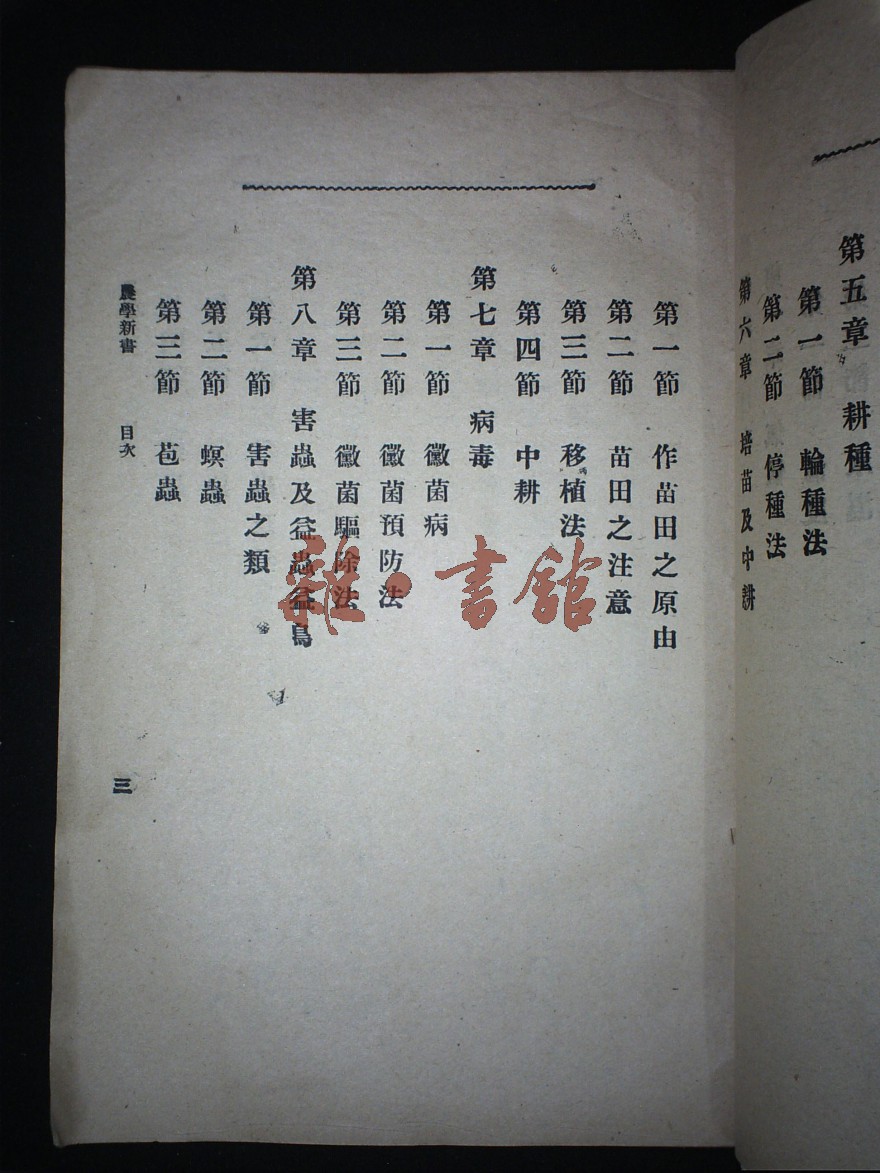 第五章 耕種
第一節 輪種法
第二節 停種法
第六章 培苗及中耕
第一節 作苗田之原由
第二節 苗田之注意
第三節 移植法
第四節 中耕
第七章 病毒
第一節 黴菌病
第二節 黴菌預防法
第三節 黴菌驅除法
第八章 害蟲及益蟲益鳥
第一節 害蟲之類
第二節 螟蟲
第三節 苞蟲
農學新書 目次 三
雜·書館